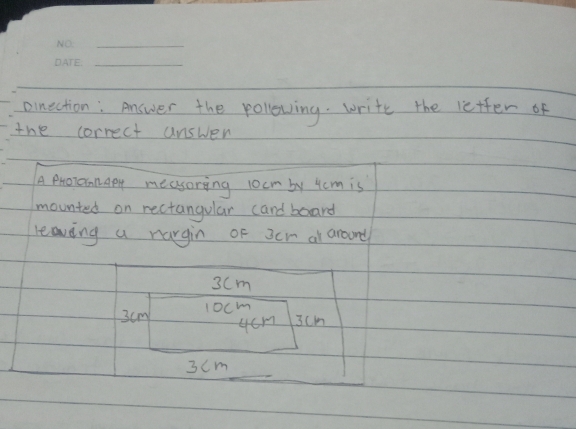 NO.
DATE
Direction: Answer the following. Write the letter of
the correct answer
A PHOTOGRAPH measoring 10cm by 4cm is
mounted on rectangular cardboard
leaving a margin OF 3cm all around
3cm
10cm
3cm 4cm 3cm
3cm